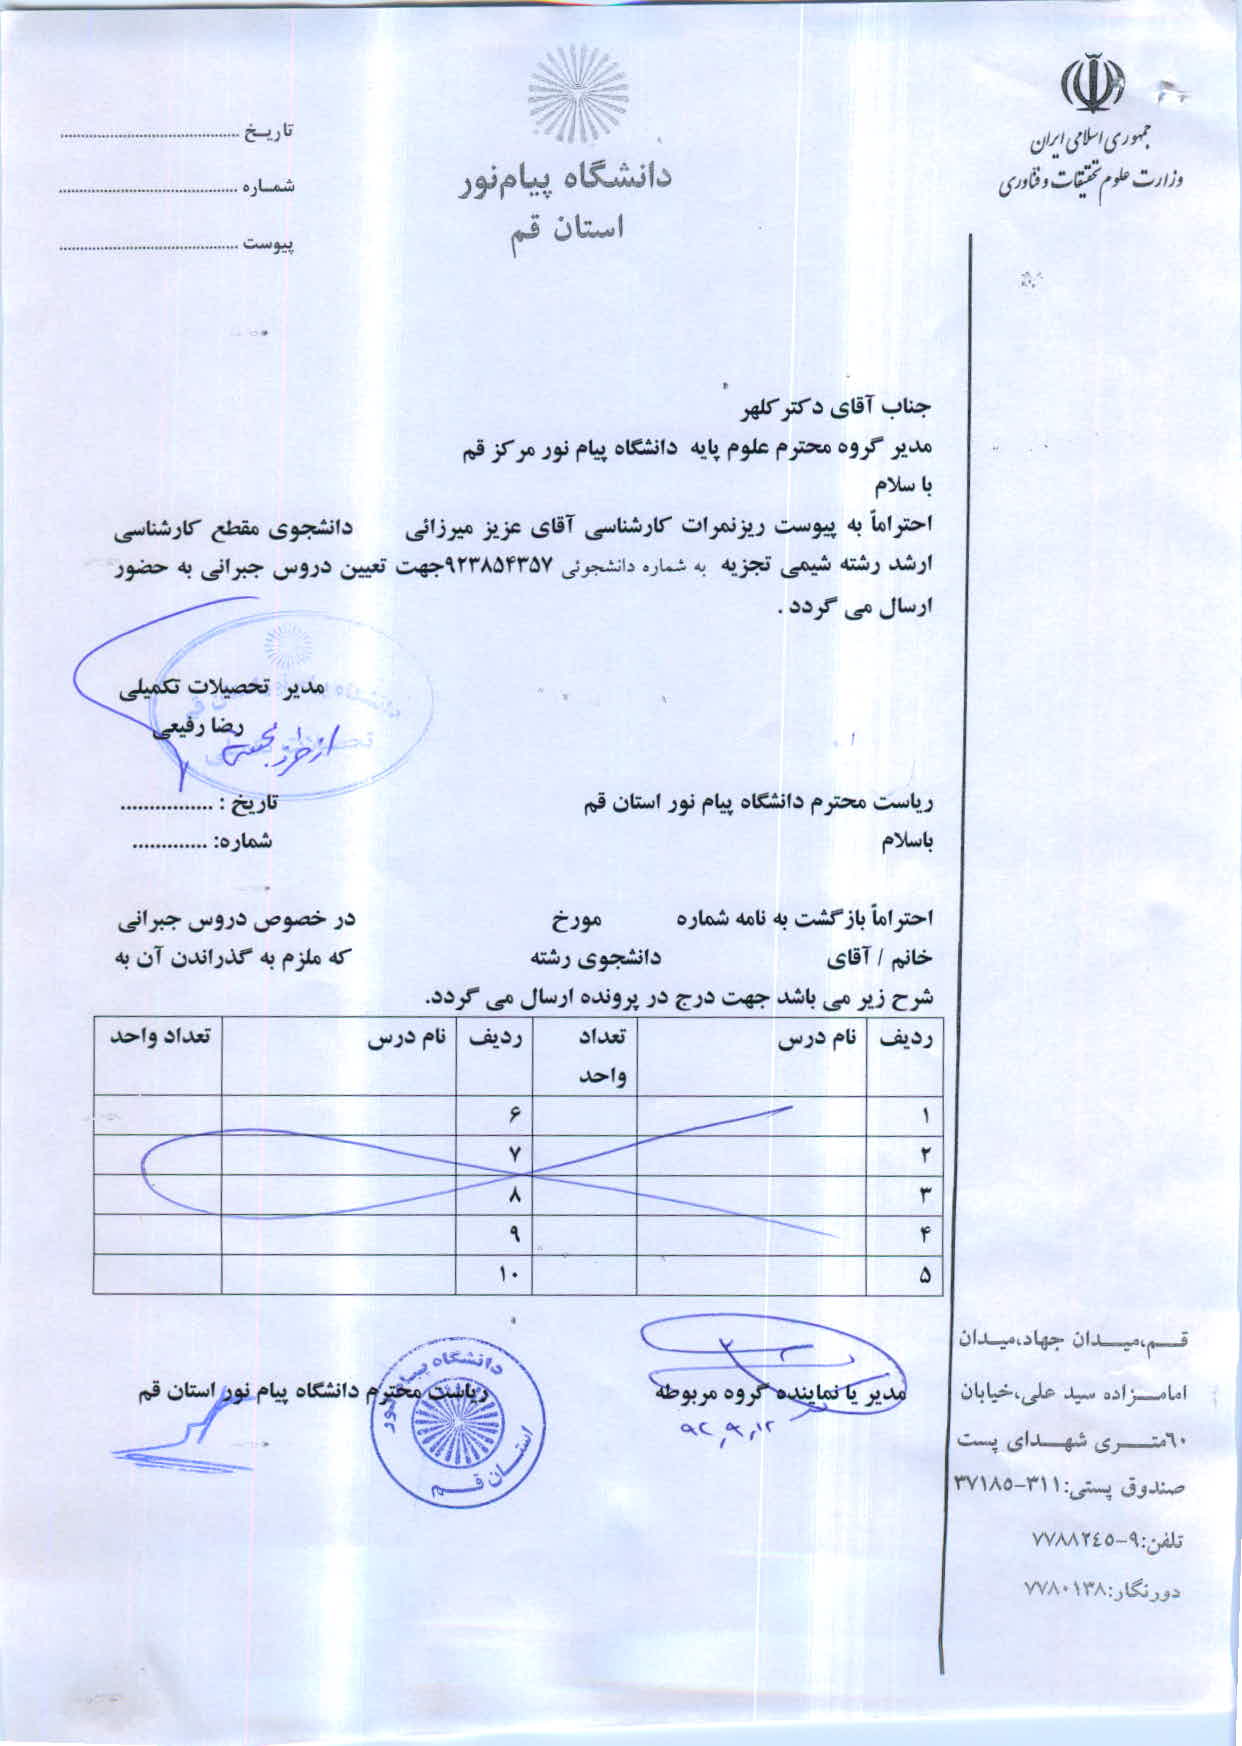 جمهوری اسلامی ایران
وزارت علوم تحقیقات و فناوری
دانشگاه پیام‌نور
استان قم
تاریـخ ........................................
شمـاره ........................................
پیوست ........................................
جناب آقای دکتر کلهر
مدیر گروه محترم علوم پایه دانشگاه پیام نور مرکز قم
با سلام
احتراماً به پیوست ریزنمرات کارشناسی آقای عزیز میرزائی دانشجوی مقطع کارشناسی
ارشد رشته شیمی تجزیه به شماره دانشجوئی ۹۲۳۸۵۴۳۵۷جهت تعیین دروس جبرانی به حضور
ارسال می گردد .
مدیر تحصیلات تکمیلی
رضا رفیعی
از طرف
ریاست محترم دانشگاه پیام نور استان قم تاریخ : ................
باسلام شماره: .............
احتراماً بازگشت به نامه شماره مورخ در خصوص دروس جبرانی
خانم / آقای دانشجوی رشته که ملزم به گذراندن آن به
شرح زیر می باشد جهت درج در پرونده ارسال می گردد.
ردیف نام درس تعداد واحد ردیف نام درس تعداد واحد
۱ ۶
۲ ۷
۳ ۸
۴ ۹
۵ ۱۰
مدیر یا نماینده گروه مربوطه ریاست محترم دانشگاه پیام نور استان قم
۹۲,۹,۱۲
دانشگاه پیام نور
استان قم
قـم،میـدان جهاد،میـدان
امامـزاده سید علی،خیابان
٦۰متـری شهـدای پست
صندوق پستی:۳۱۱-۳۷۱۸٥
تلفن:۹-۷۷۸۸۲٤٥
دورنگار:۷۷۸۰۱۳۸